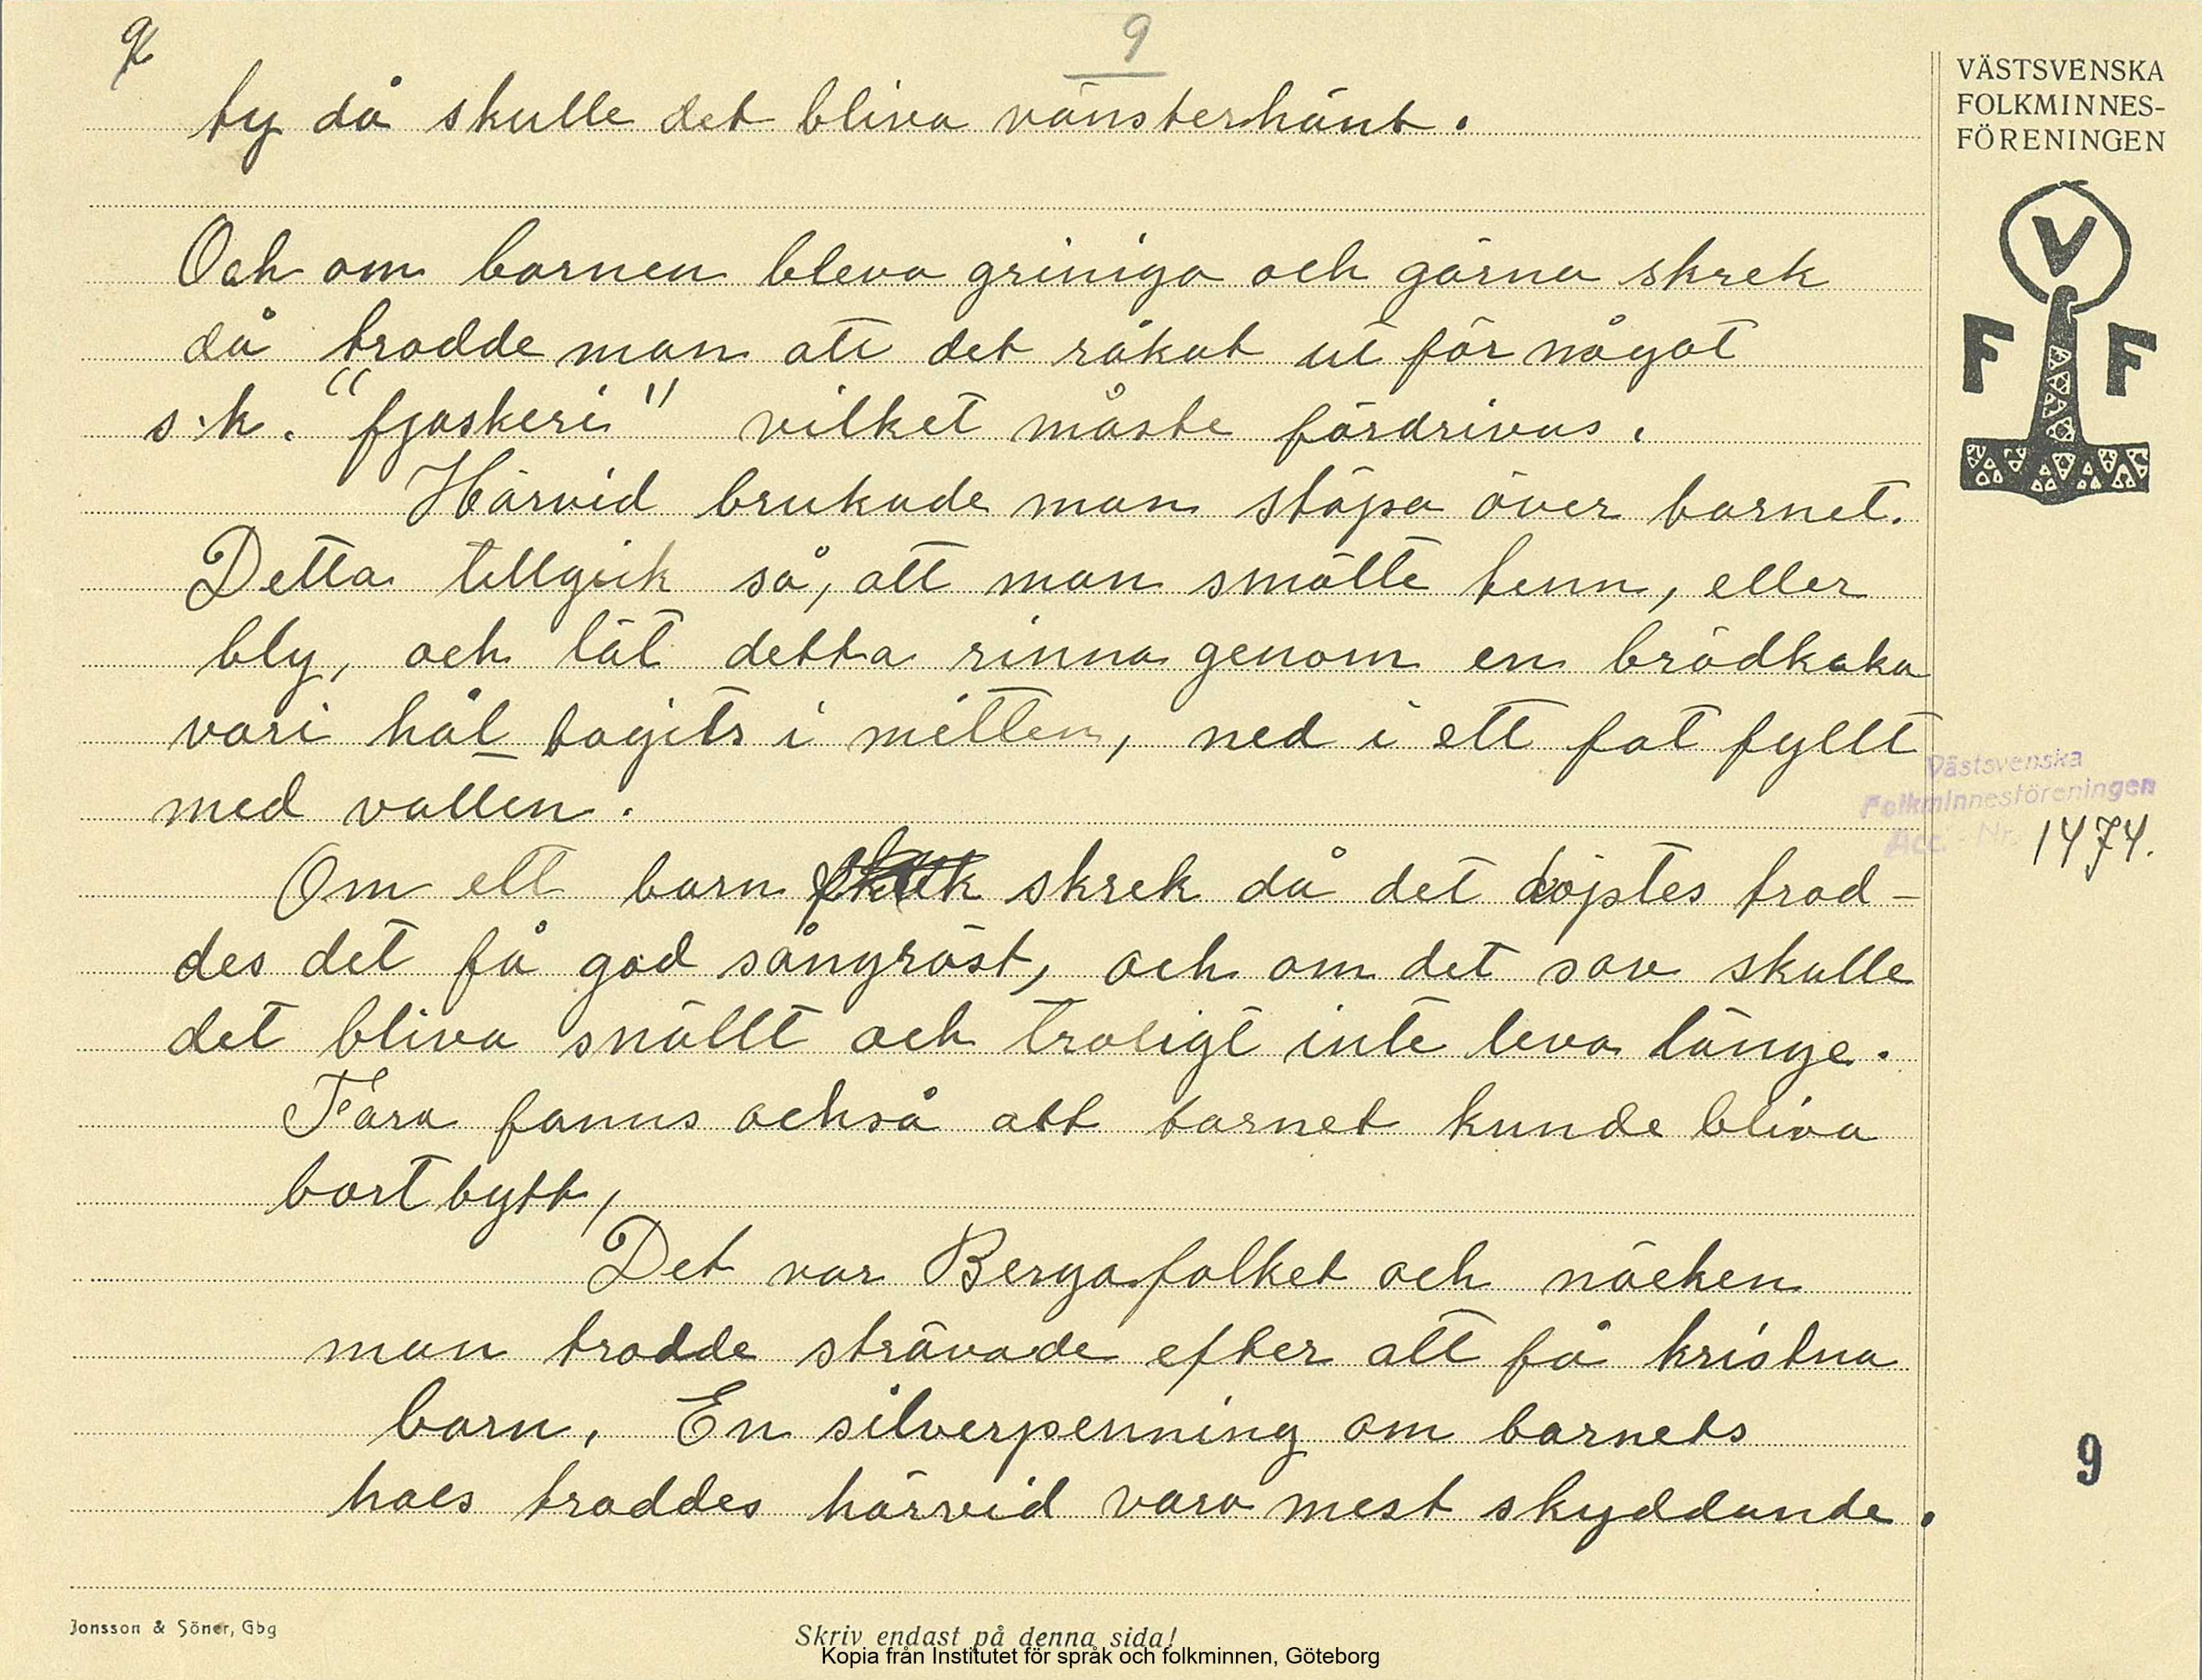 9
9
ty då skulle det bliva vänsterhänt.
Och om barnen bleva griniga och gärna skrek
då trodde man att det råkat ut för något
s.k. "fjaskeri" vilket måste fördrivas.
Härvid brukade man stöpa över barnet.
Detta tillgick så, att man smälte tenn, eller
bly, och lät detta rinna genom en brödkaka
vari hål tagits i mitten, ned i ett fat fyllt
med vatten.
Om ett barn skrek då det döptes trod-
des det få god sångröst, och om det sov skulle
det bliva snällt och troligt inte leva länge.
Fara fanns också att barnet kunde bliva
bortbytt,
Det var Bergafolket och näcken
man trodde strävade efter att få kristna
barn. En silverpenning om barnets
hals troddes härvid vara mest skyddande.
VÄSTSVENSKA
FOLKMINNES-
FÖRENINGEN
V
F F
Västsvenska
Folkminnesföreningen
Acc. - Nr. 1474.
9
Jonsson & Söner, Gbg
Skriv endast på denna sida!
Kopia från Institutet för språk och folkminnen, Göteborg